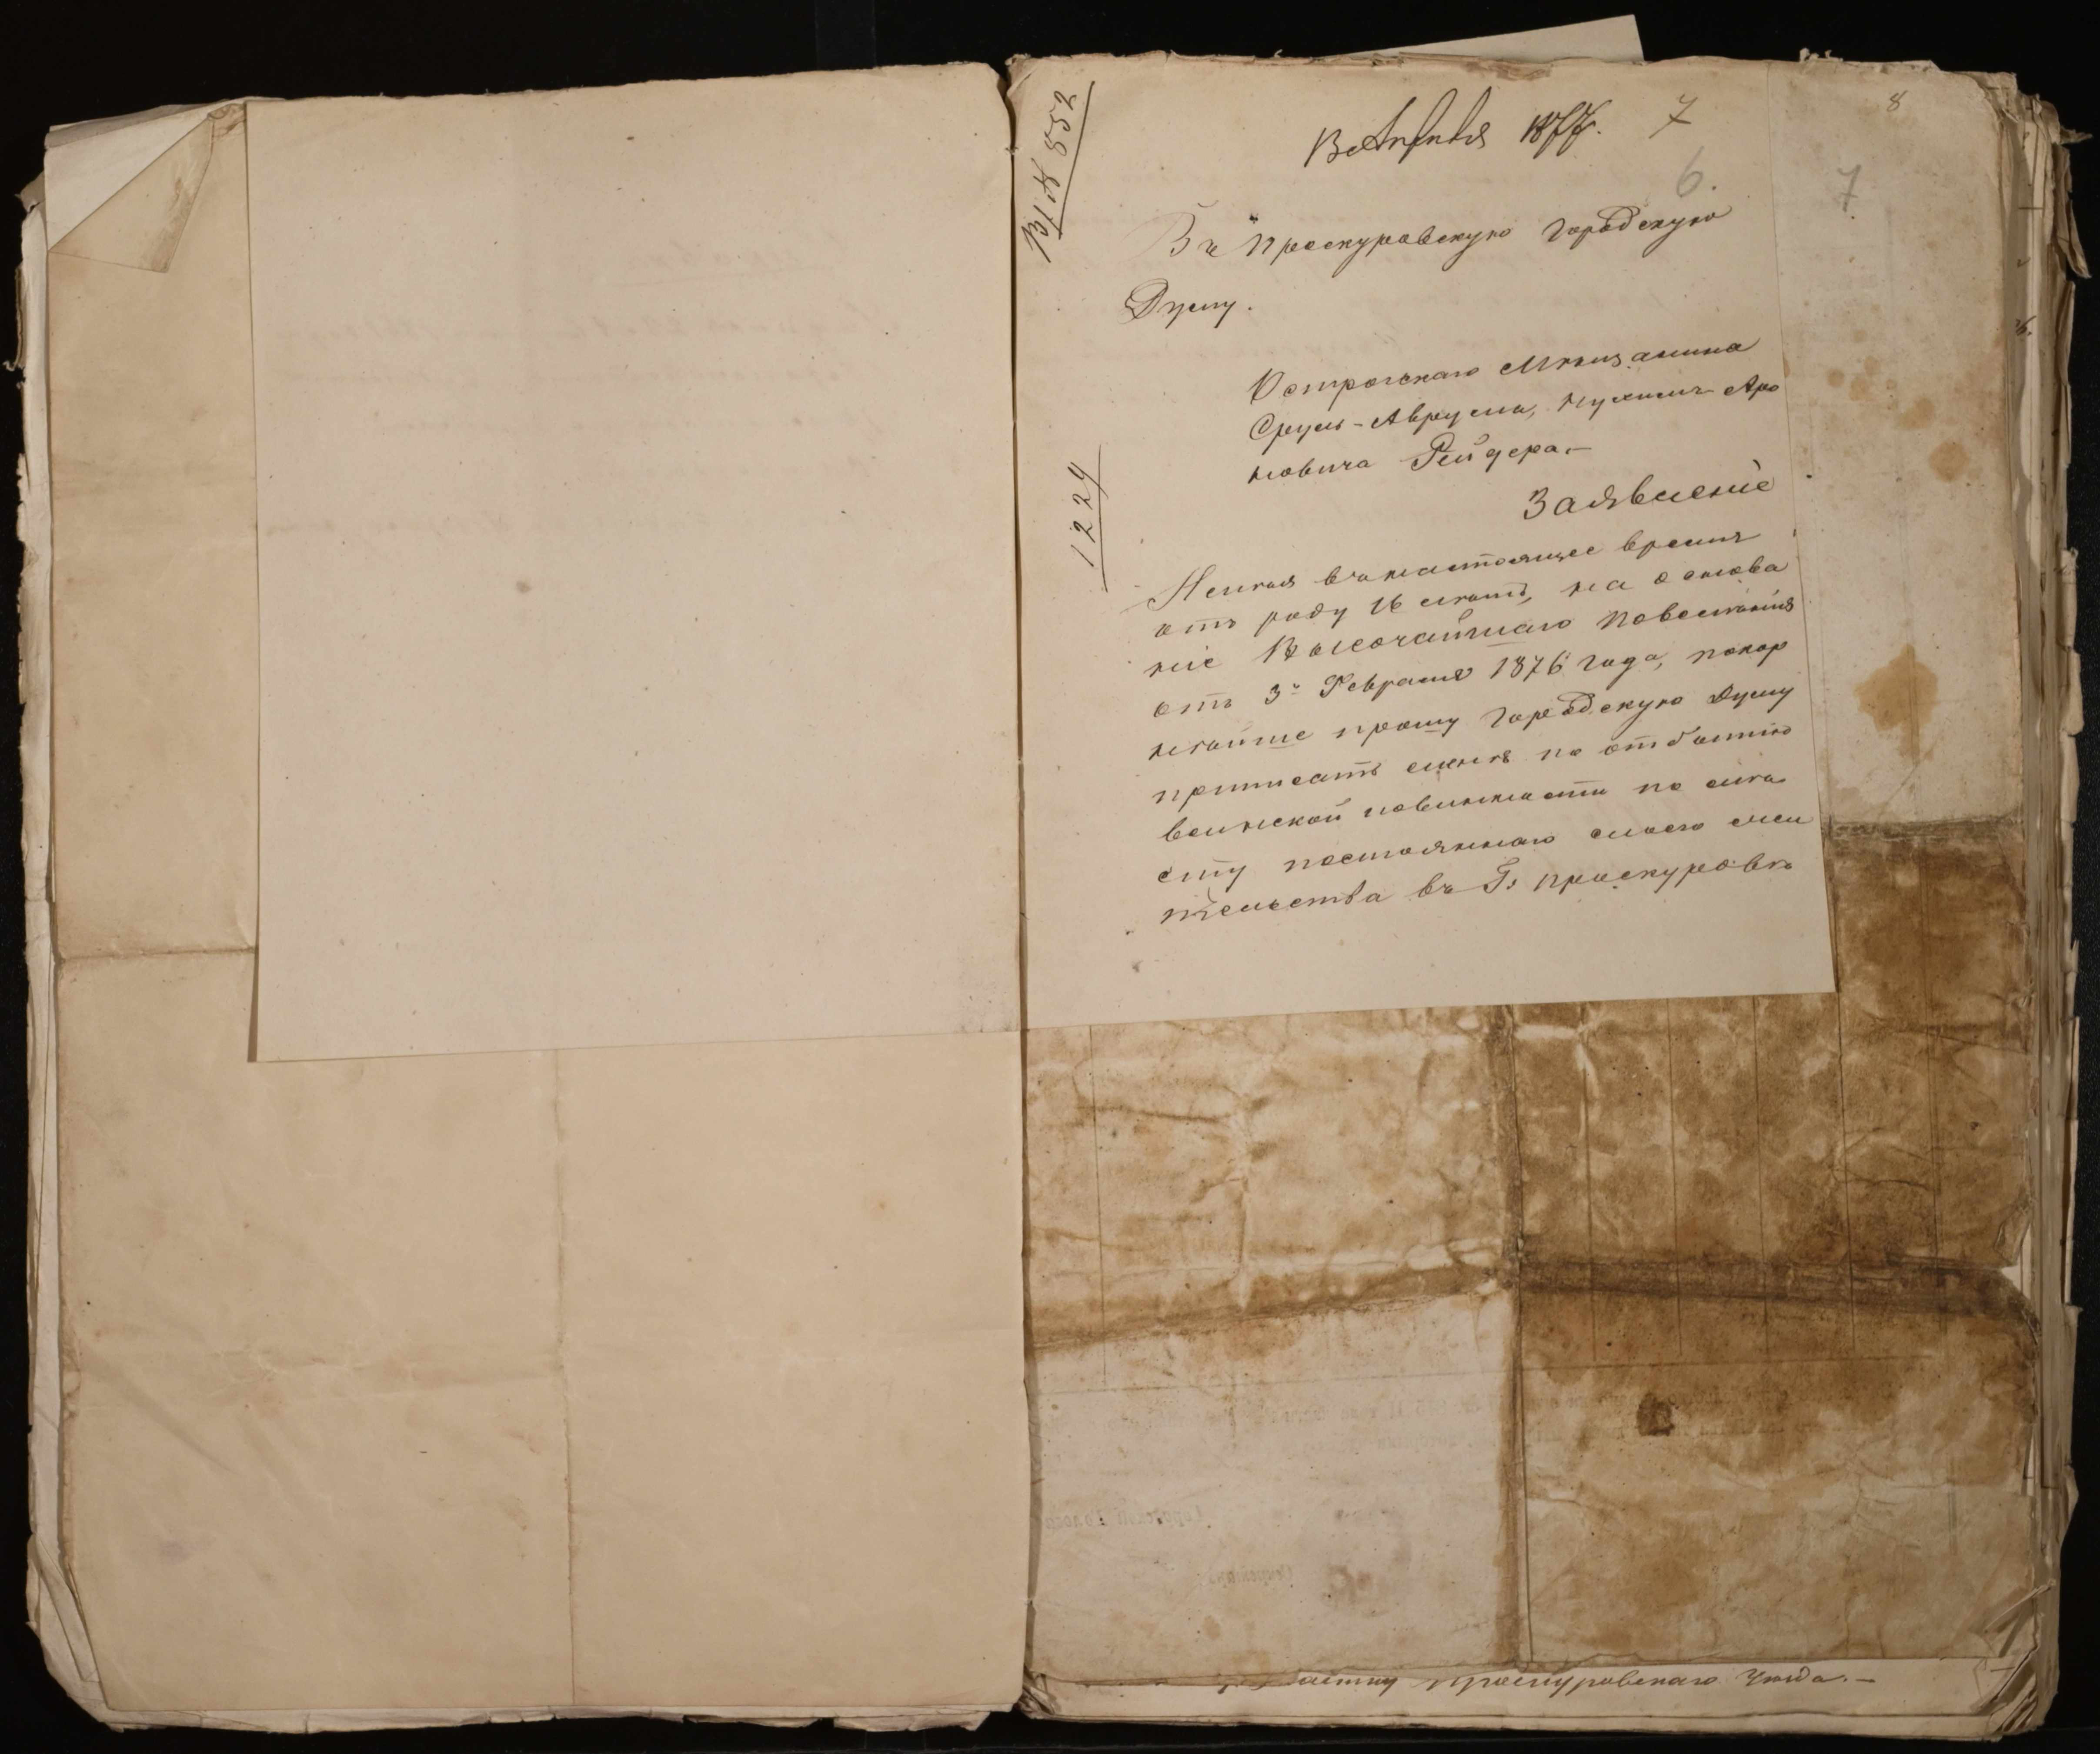 Вх. № 852
1224
8 Апрѣля 1877. 7
8
6.
7
Въ Проскуровскую Городскую
Думу.
Острогскаго Мѣщанина
Сруль-Аврума, Нухима Аро
новича Рейдера.—
Заявленіе
Имѣя въ настоящее время
отъ роду 16 лѣтъ, на основа
ніе Высочайшаго Повелѣнія
отъ 3го Февраля 1876 года, покор
нѣйше прошу Городскую Думу
приписать меня по отбытію
воинской повинности по мѣ
сту постояннаго моего жи
тельства въ Г: Проскуровѣ
Городской Голова
Секретарь
Проскуровскаго Уѣзда.—